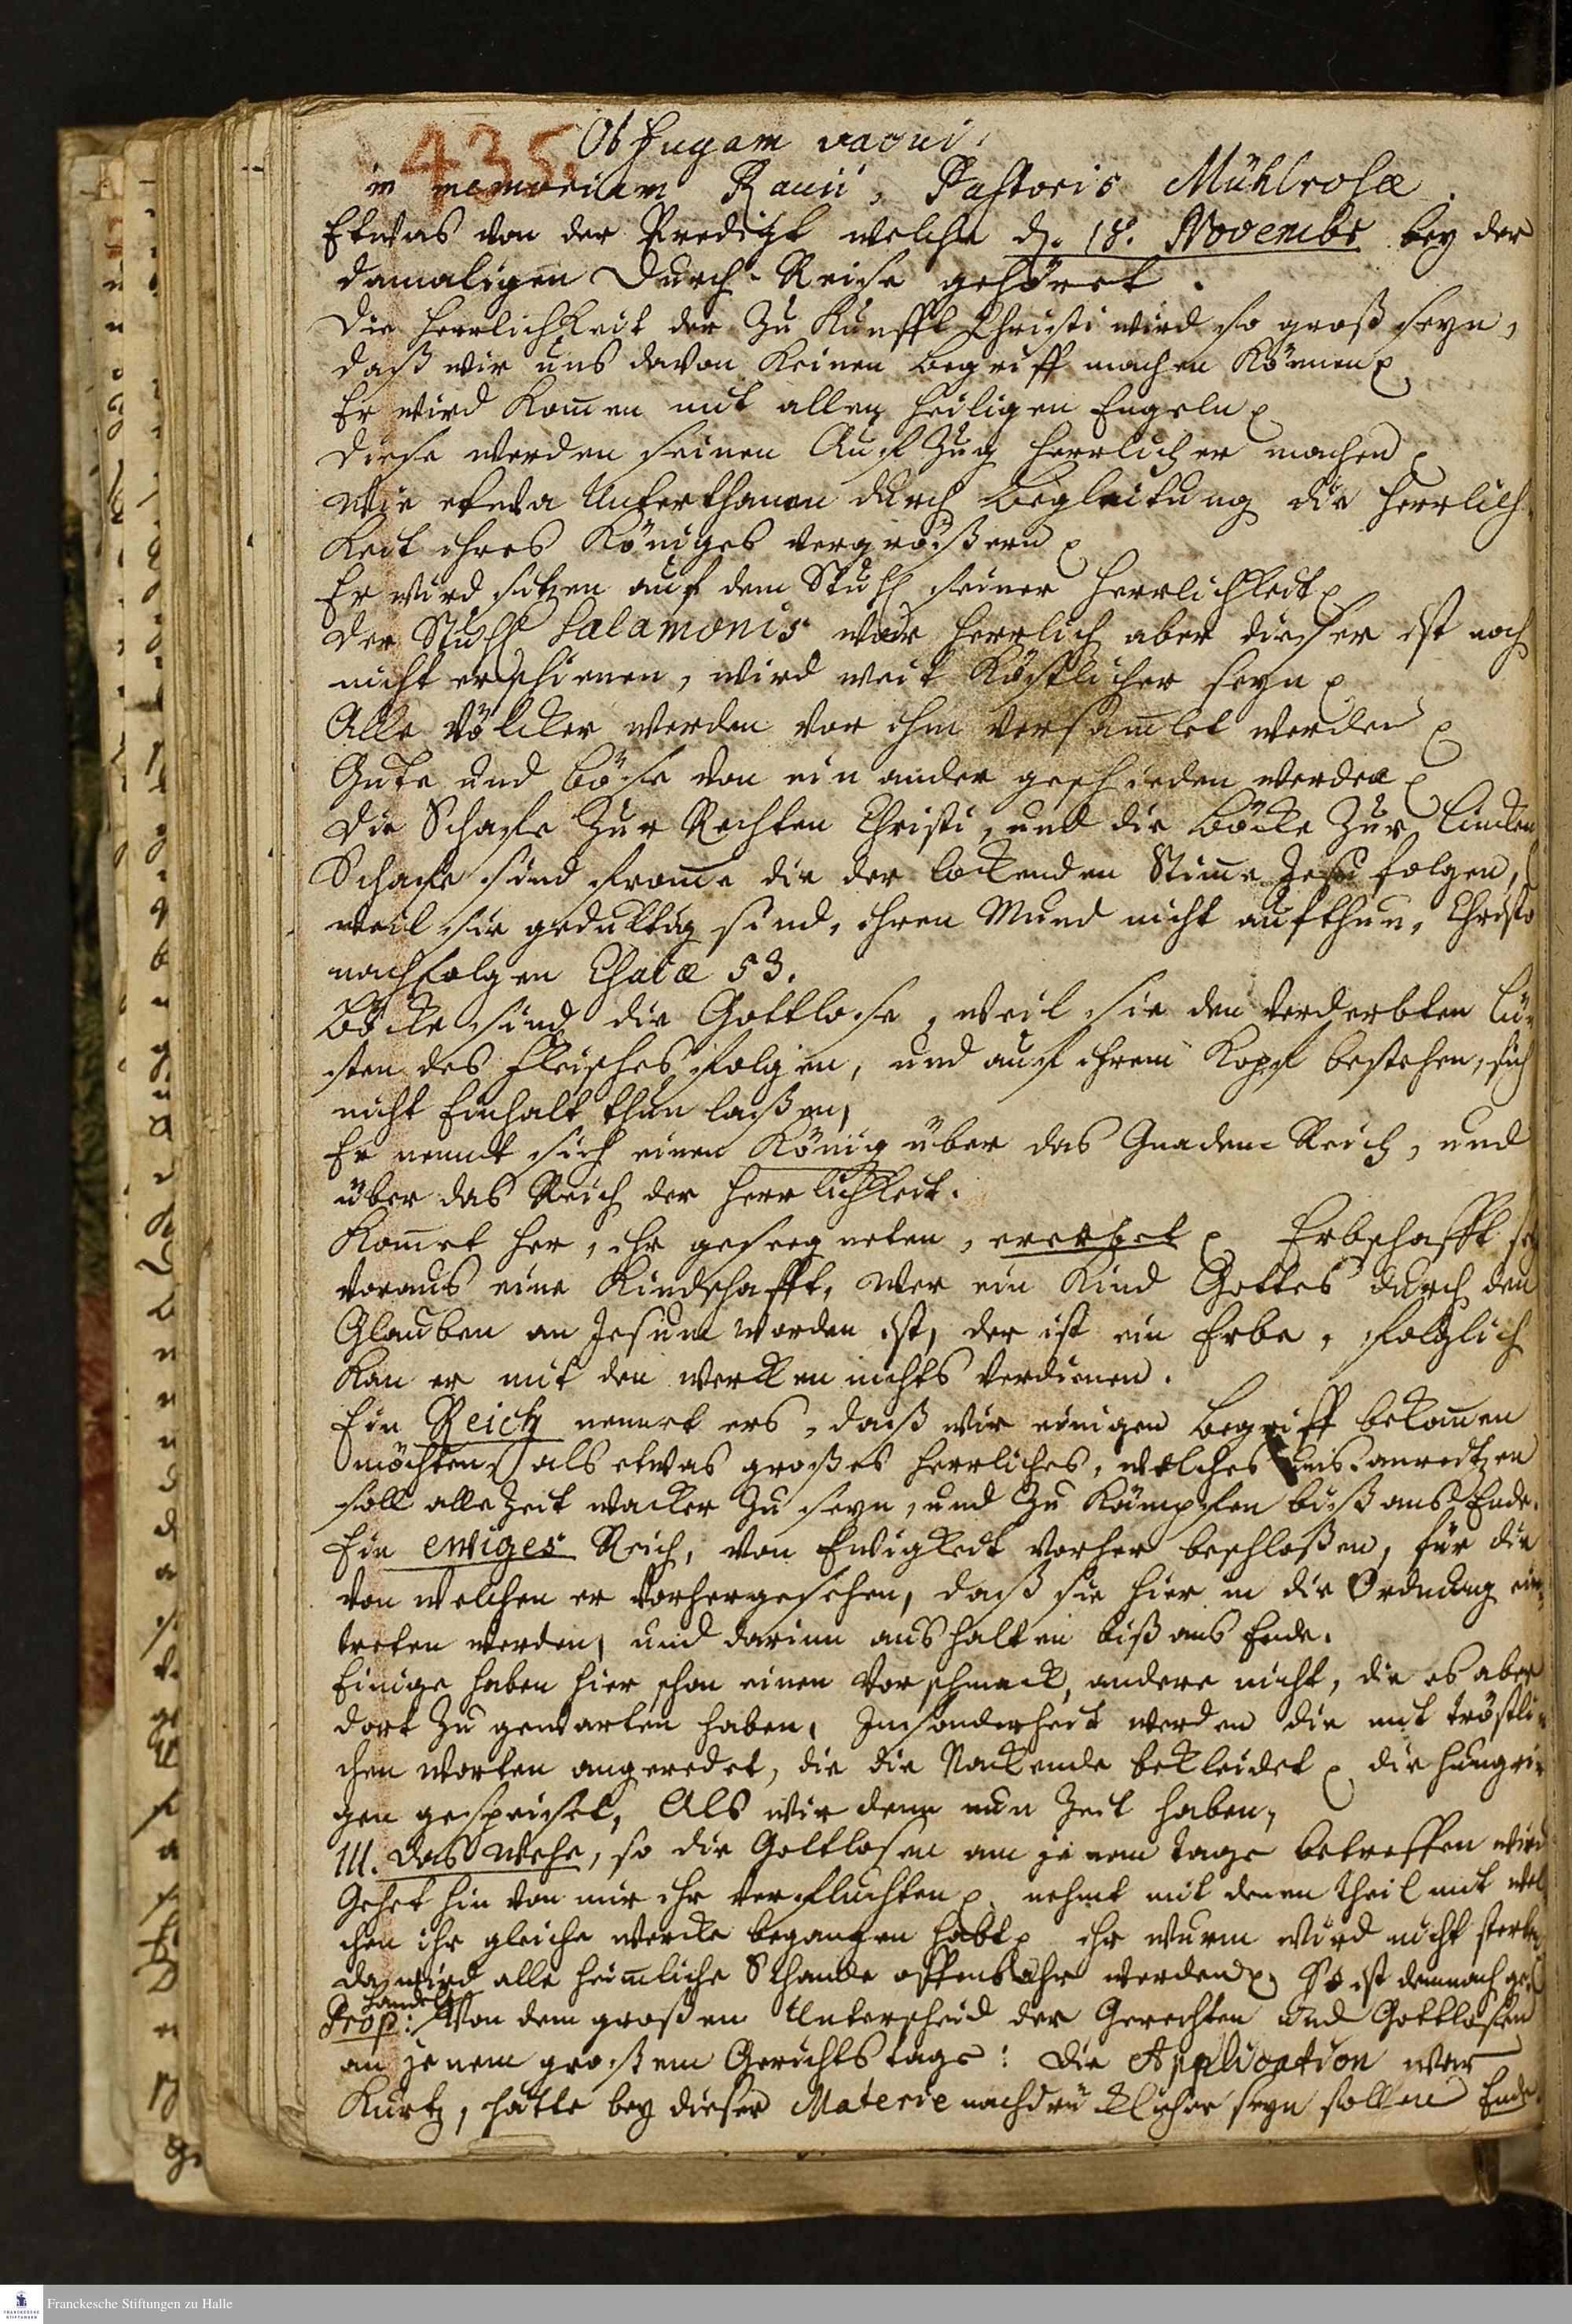 435.
Ob fugam vacui.
in memoriam Rauii, Pastoris Mühlrosæ.
Etwas von der Predigt welche d. 18. Novembr bey der
damaligen Durch-Reise gehöret.
Die Herrlichkeit der Zu Kunfft Christi wird so groß seyn,
daß wir uns davon keinen begriff machen können
Er wird kom̄en mit allen heiligen Engeln
Diese werden seinen Auf Zug herrlicher machen
Wie etwa Unterthanen durch begleitung die Herrlich
keit ihres Königes vergrößern
Er wird sitzen auf dem Stuhl seiner Herrlichkeit
Der Stuhl Salamonis war herrlich aber dieser ist noch
nicht erschienen, wird weit köstlicher seyn
Alle völcker werden vor ihm versam̄let werden
Gute und böse von ein ander geschieden werden
Die Schafe zur Rechten Christi, und die böcke zur lincken
Schafe sind from̄e die der lockenden Stim̄e Jesu folgen,
weil sie gedultig sind, ihren Mund nicht aufthun, Christo
nachfolgen Esaiæ 53.
Böcke sind die Gottlose, weil sie den verderbten lü-
sten des fleisches folgen, und auf ihrem Kopf bestehen, sich
nicht Einhalt thun laßen,
Er nennt sich einen König über das Gnaden Reich, und
über das Reich der Herrlichkeit.
Kom̄et her, ihr geseegneten, ererbet Erbschafft setzt
voraus eine Kindschafft, Wer ein Kind Gottes durch den
Glauben an Jesum worden ist, der ist ein Erbe, folglich
kan er mit den wercken nichts verdienen.
Ein Reich nennet ers, daß wir einigen begriff bekom̄en
möchten, als etwas großes herrliches, welches uns anreitzen
soll alle Zeit wacker zu seyn, und zu kämpfen biß ans Ende.
Ein ewiges Reich, von Ewigkeit vorher beschloßen, für die
von welchen er vorhergesehen, daß sie hier in die Ordnung ein
treten werden, und darinn aushalten biß ans Ende.
Einige haben hier schon einen Vorschmack, andere nicht, die es aber
dort zu gewarten haben, Insonderheit werden die mit tröstli-
chen Worten angeredet, die die Nackende bekleidet die hungri-
gen gespeiset, Als wir denn nun Zeit haben,
III. Das Wehe, so die Gottlosen an jenem tage betreffen wird
Gehet hin von mir ihr verfluchten nehmt mit denen theil mit wel
chen ihr gleiche wercke begangen habt ihr wurm wird nicht sterben
da wird alle heimliche Schande offenbahr werden Es ist demnach ge-
handelt
Prop: Von dem großen Unterscheid der Gerechten und Gottlosen
an jenem großem Gerichtstage: die Application war
kurtz, hätte bey dieser Materie nachdrücklicher seyn sollen Ende.
Franckesche Stiftungen zu Halle